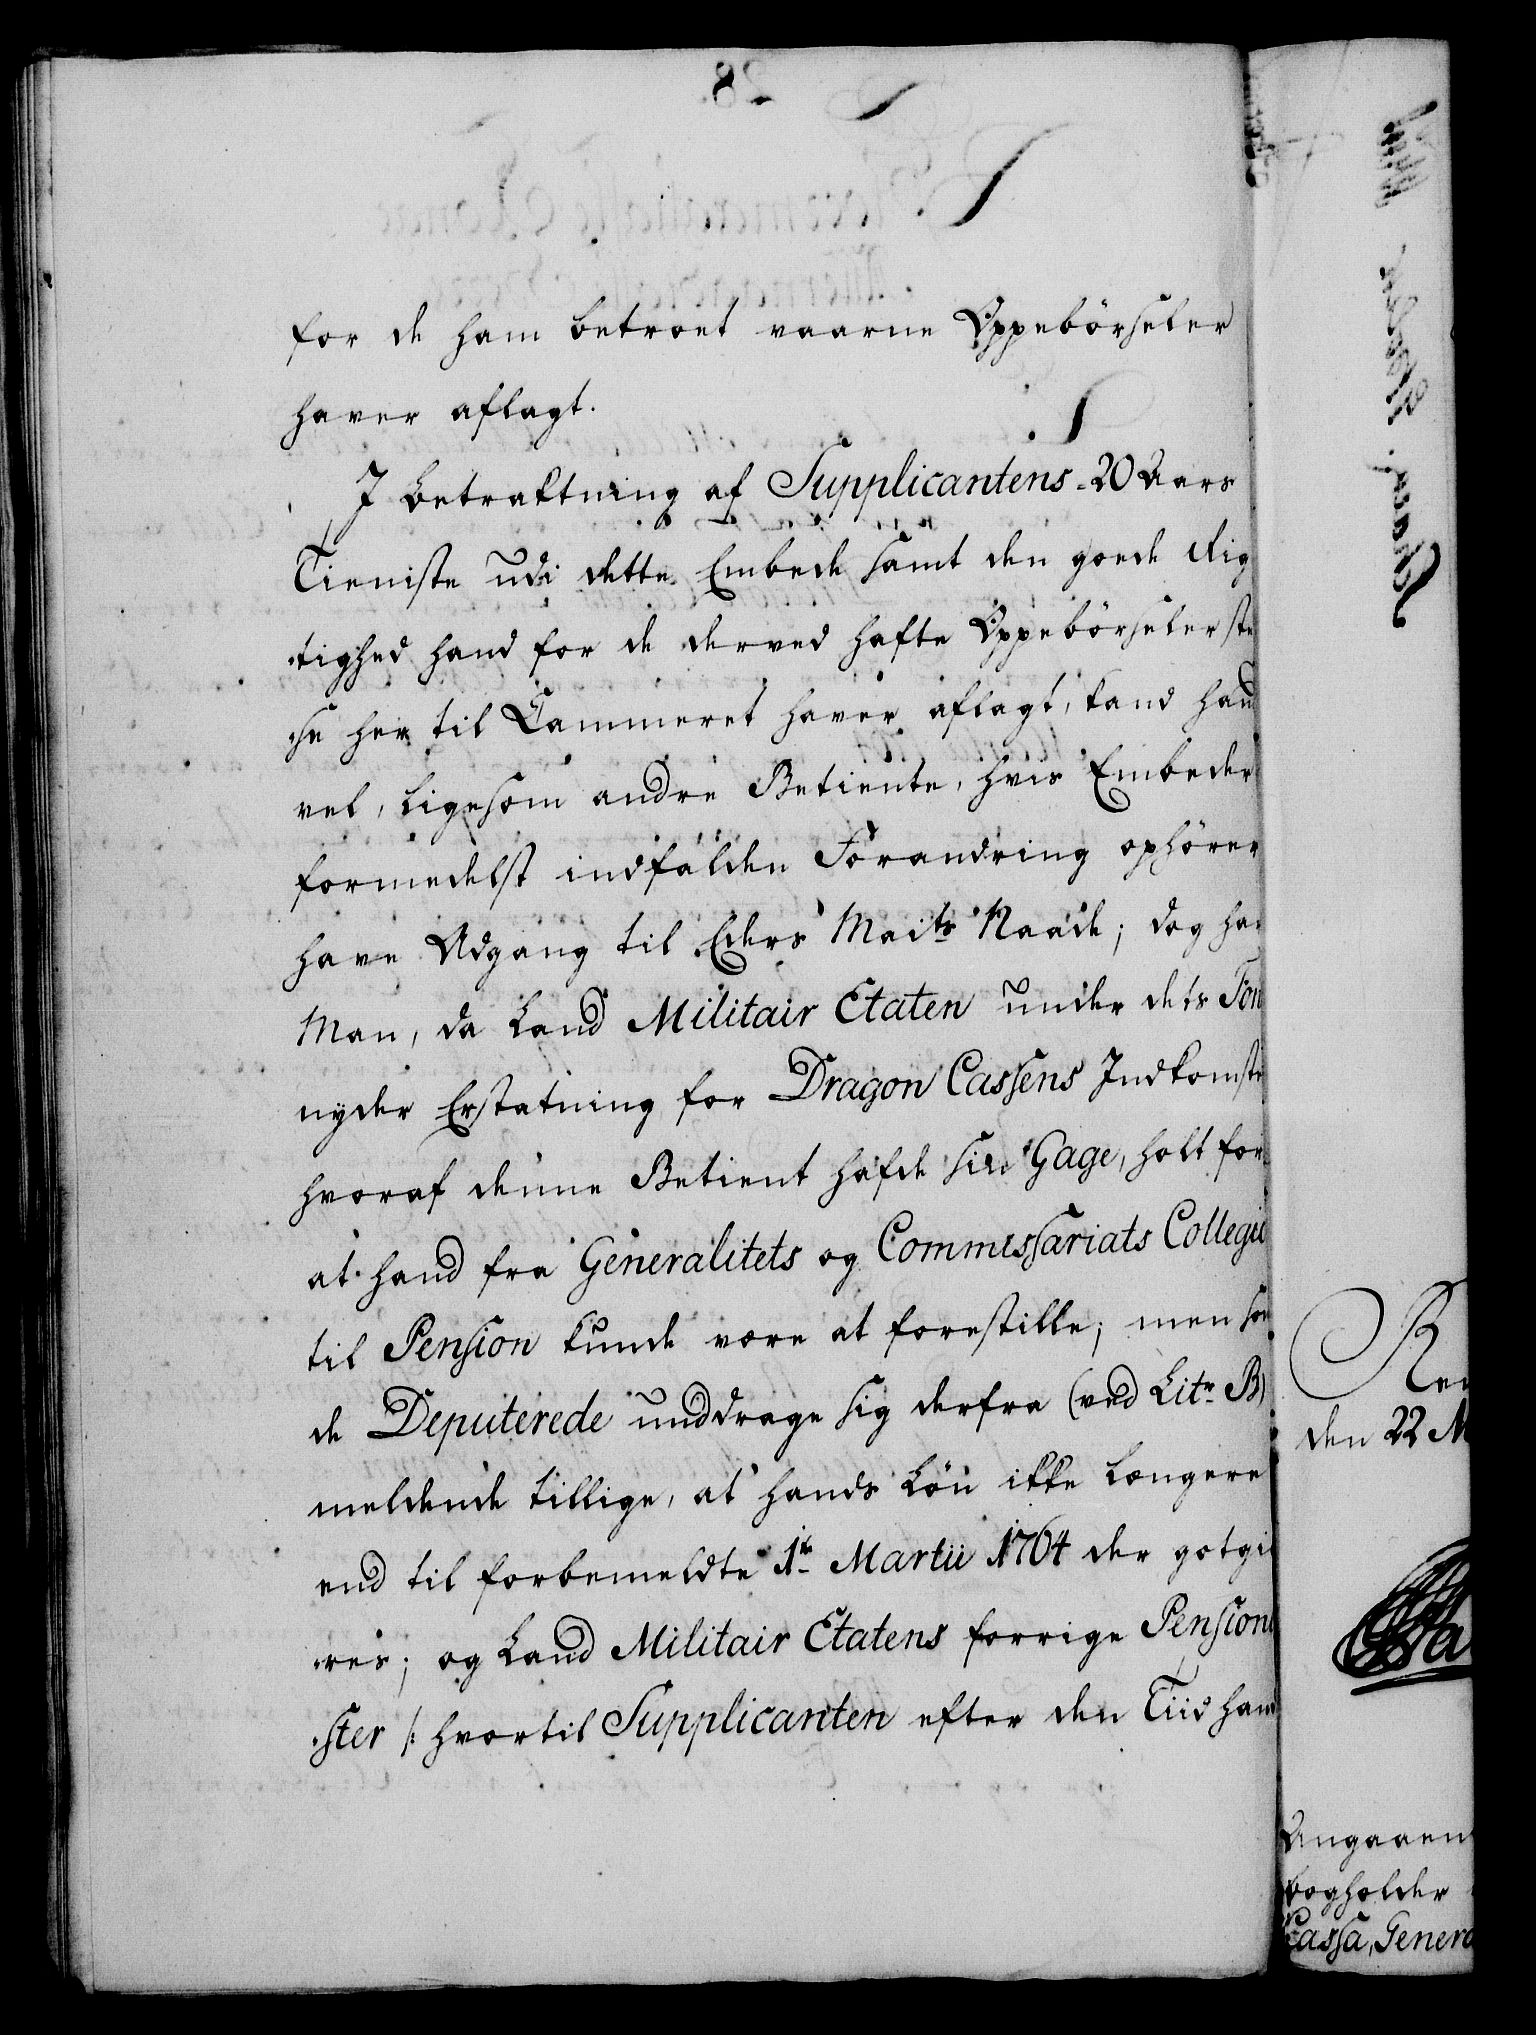 for de ham betroet vaarne Oppebörseler
haver aflagt.
I betraktning af Supplicantens 20 Aars
Tieniste udi dette Embede samt den goede Rig
tighed hand for de derved hafte Oppebörseler ste
se her til Cammeret haver aflagt, kand hand
vel, ligesom andre Betiente, hvis Embeder
formedelst indfalden Forandring ophörer
have Adgang til Eders Maits Naade; dog har
Man, da Land Militair Etaten under dets Fon
nyder Erstatning for Dragon Cassens Indkomste
hvoraf denne Betient hafde sin Gage, holt for
at hand fra Generalitets og Commissariats Collegio
til Pension kunde være at forestille; men som
de Deputerede unddrage sig derfra (ved Litr B)
meldende tillige, at hands Lön ikke længere
end til forbemeldte 1te Martii 1764 der gotgiö
res; og Land Militair Etatens forrige Pensions
ster /: hvortil Supplicanten efter den Tiid hand
den 22 M
Angaaen
bogholder
Cassa, Genera